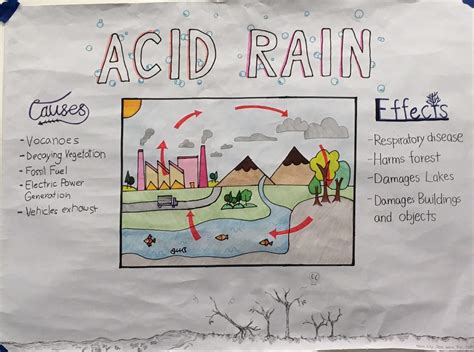 ACID RAIN
Causes
- Vocanoes
- Decaying Vegetation
- Fossil Fuel
- Electric Power
Generation
- Vehicles exhaust
Effects
- Respiratory disease
- Harms forest
- Damages Lakes
- Damages Buildings
and objects